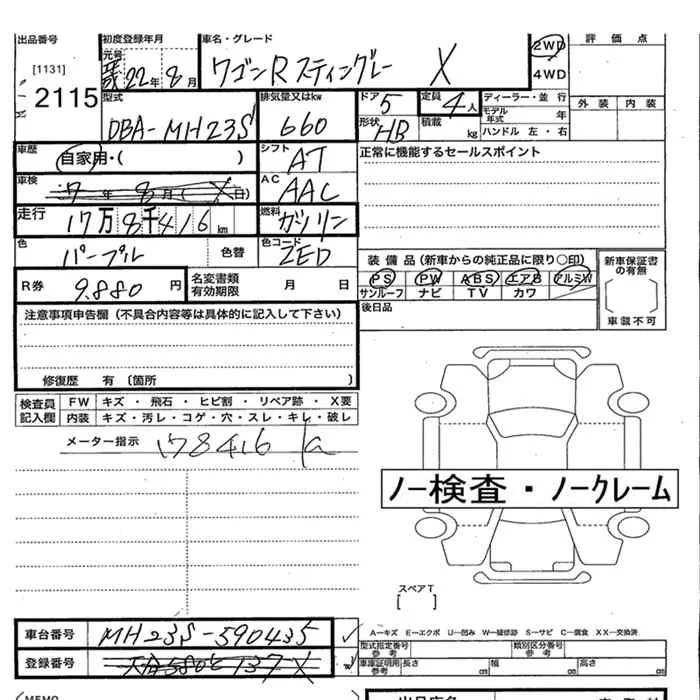 出品番号 初度登録年月 車名・グレード 評価点
元号
[1131] 22年 8月 ワゴンR スティングレー X 2WD
2115 4WD
外装 内装
型式 排気量又はkw ドア 5 定員 4人 ディーラー・並行
モデル年式 年
DBA-MH23S 660 形状 HB 積載 kg ハンドル 左・右
車歴 シフト 正常に機能するセールスポイント
自家用・( ) AT
車検 7年 8月(X日) AC AAC
走行 17万8千416km 燃料 ガソリン
色 パープル 色替 色コード ZED
装備品(新車からの純正品に限り○印) 新車保証書の有無
R券 9.880円 名変書類有効期限 月 日
PS PW ABS エアB アルミW
サンルーフ ナビ TV カワ
車載不可
注意事項申告欄(不具合内容等は具体的に記入して下さい) 後日品
修復歴 有 〔箇所 〕
検査員記入欄 FW キズ・飛石・ヒビ割・リペア跡・X要
内装 キズ・汚レ・コゲ・穴・スレ・キレ・破レ
メーター指示 178416 km
ノー検査・ノークレーム
スペアT
[ ]
車台番号 MH23S-590435
A-キズ E-エクボ U-凹み W-補修跡 S-サビ C-腐食 XX-交換済
型式指定番号参考 類別区分番号参考
登録番号 580 137 X
車庫証明用参考 長さ cm 幅 cm 高さ cm
MEMO 出品店名